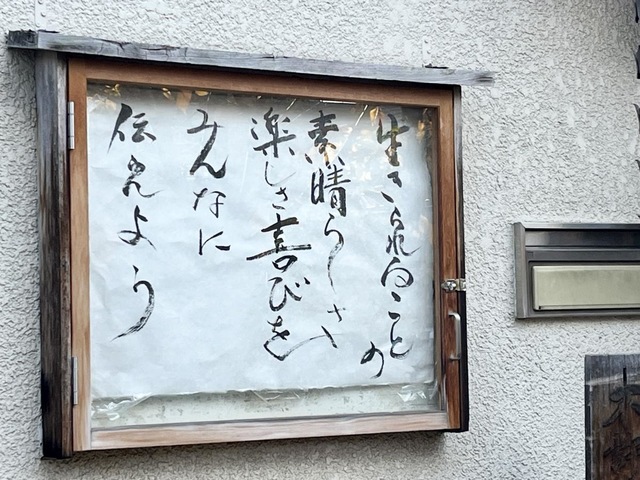 生きられることの
素晴らしさや
楽しさ喜びを
みんなに
伝えよう